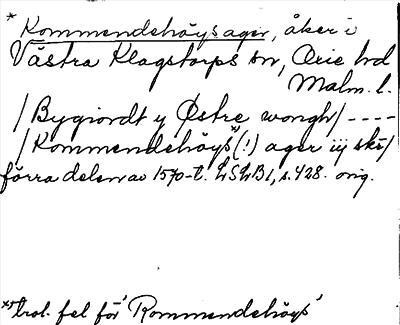 * Kommendehöys ager, åker i
Västra Klagstorps sn, Oxie hd
Malm. l.
/Bygiordt y Østre wongh/ ----
/Kommendehöys*(!) ager iij skr/
förra delen av 1570-t. LSLB1, s. 428. orig.
*trol. fel för 'Rommendehöys'